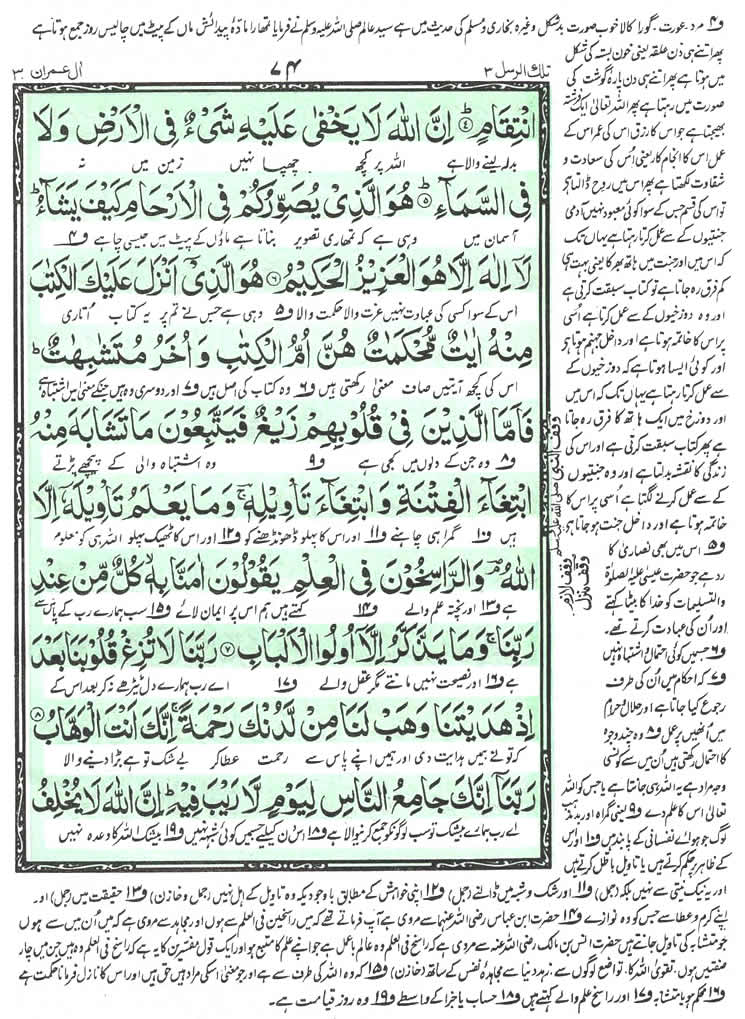 و۴ مرد، عورت، گورا کالا خوب صورت بدشکل وغیرہ بخاری و مسلم کی حدیث میں ہے سید عالم صلی اللہ علیہ وسلم نے فرمایا تمھارا مادۂ پیدائش ماں کے پیٹ میں چالیس روز جمع ہوتا ہے
تلك الرسل ٣
٧٤
ال عمران ٣
انْتِقَامٍ ﴿٤﴾ اِنَّ اللّٰهَ لَا يَخْفٰى عَلَيْهِ شَيْءٌ فِى الْاَرْضِ وَلَا
بدلہ لینے والا ہے اللہ پر کچھ چھپا نہیں زمین میں نہ
فِى السَّمَآءِ ﴿٥﴾ هُوَ الَّذِىْ يُصَوِّرُكُمْ فِى الْاَرْحَامِ كَيْفَ يَشَآءُ ؕ
آسمان میں وہی ہے کہ تمھاری تصویر بناتا ہے ماؤں کے پیٹ میں جیسی چاہے و۴
لَاۤ اِلٰهَ اِلَّا هُوَ الْعَزِيْزُ الْحَكِيْمُ ﴿٦﴾ هُوَ الَّذِىْۤ اَنْزَلَ عَلَيْكَ الْكِتٰبَ
اس کے سوا کسی کی عبادت نہیں عزت والا حکمت والا و۵ وہی ہے جس نے تم پر یہ کتاب اتاری
مِنْهُ اٰيٰتٌ مُّحْكَمٰتٌ هُنَّ اُمُّ الْكِتٰبِ وَاُخَرُ مُتَشٰبِهٰتٌ ؕ
اس کی کچھ آیتیں صاف معنیٰ رکھتی ہیں و۶ وہ کتاب کی اصل ہیں و۷ اور دوسری وہ ہیں جنکے معنی میں اشتباہ ہے
فَاَمَّا الَّذِيْنَ فِىْ قُلُوْبِهِمْ زَيْغٌ فَيَتَّبِعُوْنَ مَا تَشَابَهَ مِنْهُ
و۸ وہ جن کے دلوں میں کجی ہے و۹ وہ اشتباہ والی کے پیچھے پڑتے
ابْتِغَآءَ الْفِتْنَةِ وَابْتِغَآءَ تَاْوِيْلِهٖ ۚ وَمَا يَعْلَمُ تَاْوِيْلَهٗۤ اِلَّا
ہیں و۱۰ گمراہی چاہنے و۱۱ اور اس کا پہلو ڈھونڈھنے کو و۱۲ اور اس کا ٹھیک پہلو اللہ ہی کو معلوم
اللّٰهُ ۘ وَالرّٰسِخُوْنَ فِى الْعِلْمِ يَقُوْلُوْنَ اٰمَنَّا بِهٖ ۙ كُلٌّ مِّنْ عِنْدِ
ہے و۱۳ اور پختہ علم والے و۱۴ کہتے ہیں ہم اس پر ایمان لائے و۱۵ سب ہمارے رب کے پاس سے
رَبِّنَا ۚ وَمَا يَذَّكَّرُ اِلَّاۤ اُولُوا الْاَلْبَابِ ﴿٧﴾ رَبَّنَا لَا تُزِغْ قُلُوْبَنَا بَعْدَ
ہے و۱۶ اور نصیحت نہیں مانتے مگر عقل والے و۱۷ اے رب ہمارے دل ٹیڑھے نہ کر بعد اس کے
اِذْ هَدَيْتَنَا وَهَبْ لَنَا مِنْ لَّدُنْكَ رَحْمَةً ۚ اِنَّكَ اَنْتَ الْوَهَّابُ ﴿٨﴾
کہ تو نے ہمیں ہدایت دی اور ہمیں اپنے پاس سے رحمت عطا کر بے شک تو ہے بڑا دینے والا
رَبَّنَاۤ اِنَّكَ جَامِعُ النَّاسِ لِيَوْمٍ لَّا رَيْبَ فِيْهِ ؕ اِنَّ اللّٰهَ لَا يُخْلِفُ
اے رب ہمارے بیشک تو سب لوگوں کو جمع کرنیوالا ہے و۱۸ اس دن کیلئے جس میں کوئی شبہ نہیں و۱۹ بیشک اللہ کا وعدہ نہیں
وقف النبی صلی اللہ علیہ وسلم
وقف لازم
وقف منزل
پھر اتنے ہی دن علقہ یعنی خون بستہ کی شکل
میں ہوتا ہے پھر اتنے ہی دن پارۂ گوشت کی
صورت میں رہتا ہے پھر اللہ تعالیٰ ایک فرشتہ
بھیجتا ہے جو اس کا رزق اس کی عمر اس کے
عمل اس کا انجام کار یعنی اس کی سعادت و
شقاوت لکھتا ہے پھر اس میں روح ڈالتا ہے
تو اس کی قسم جس کے سوا کوئی معبود نہیں آدمی
جنتیوں کے سے عمل کرتا رہتا ہے یہاں تک
کہ اس میں اور جنت میں ہاتھ بھر کا یعنی بہت ہی
کم فرق رہ جاتا ہے تو کتاب سبقت کرتی ہے
اور وہ دوزخیوں کے سے عمل کرتا ہے اسی
پر اس کا خاتمہ ہوتا ہے اور داخل جہنم ہوتا ہے
اور کوئی ایسا ہوتا ہے کہ دوزخیوں کے
سے عمل کرتا رہتا ہے یہاں تک کہ اس میں
اور دوزخ میں ایک ہاتھ کا فرق رہ جاتا
ہے پھر کتاب سبقت کرتی ہے اور اس کی
زندگی کا نقشہ بدلتا ہے اور وہ جنتیوں
کے سے عمل کرنے لگتا ہے اسی پر اس کا
خاتمہ ہوتا ہے اور داخل جنت ہو جاتا ہے
و۵ اس میں بھی نصاریٰ کا
رد ہے جو حضرت عیسیٰ علیہ الصلوٰۃ
والتسلیمات کو خدا کا بیٹا کہتے
اور ان کی عبادت کرتے تھے۔
و۶ جس میں کوئی احتمال و اشتباہ نہیں
و۷ کہ احکام میں ان کی طرف
رجوع کیا جاتا ہے اور حلال و حرام
میں انھیں پر عمل و۸ وہ چند وجوہ
کا احتمال رکھتی ہیں ان میں سے کونسی
وجہ مراد ہے یہ اللہ ہی جانتا ہے یا جس کو اللہ
تعالیٰ اس کا علم دے و۹ یعنی گمراہ اور بد مذہب
لوگ جو ہوائے نفسانی کے پابند ہیں و۱۰ اور اس
کے ظاہر پر حکم کرتے ہیں یا تاویل باطل کرتے ہیں
اور یہ نیک نیتی سے نہیں بلکہ (جمل) و۱۱ اور شک و شبہ میں ڈالنے (جمل) و۱۲ اپنی خواہش کے مطابق باوجودیکہ وہ تاویل کے اہل نہیں (جمل و خازن) و۱۳ حقیقت میں (جمل) اور
اپنے کرم و عطا سے جس کو وہ نوازے و۱۴ حضرت ابن عباس رضی اللہ عنہما سے مروی ہے آپ فرماتے تھے کہ میں راسخین فی العلم سے ہوں اور مجاہد سے مروی ہے کہ میں ان میں سے ہوں
جو متشابہ کی تاویل جانتے ہیں حضرت انس بن مالک رضی اللہ عنہ سے مروی ہے کہ راسخ فی العلم وہ عالم باعمل ہے جو اپنے علم کا متبع ہو اور ایک قول مفسرین کا یہ ہے کہ راسخ فی العلم وہ ہیں جن میں چار
صفتیں ہوں، تقویٰ اللہ کا، تواضع لوگوں سے، زہد دنیا سے مجاہدہ نفس کے ساتھ (خازن) و۱۵ کہ وہ اللہ کی طرف سے ہے اور جو معنیٰ اسکی مراد ہیں حق ہیں اور اس کا نازل فرمانا حکمت ہے
و۱۶ محکم ہو یا متشابہ و۱۷ اور راسخ علم والے کہتے ہیں و۱۸ حساب یا جزا کے واسطے و۱۹ وہ روز قیامت ہے۔